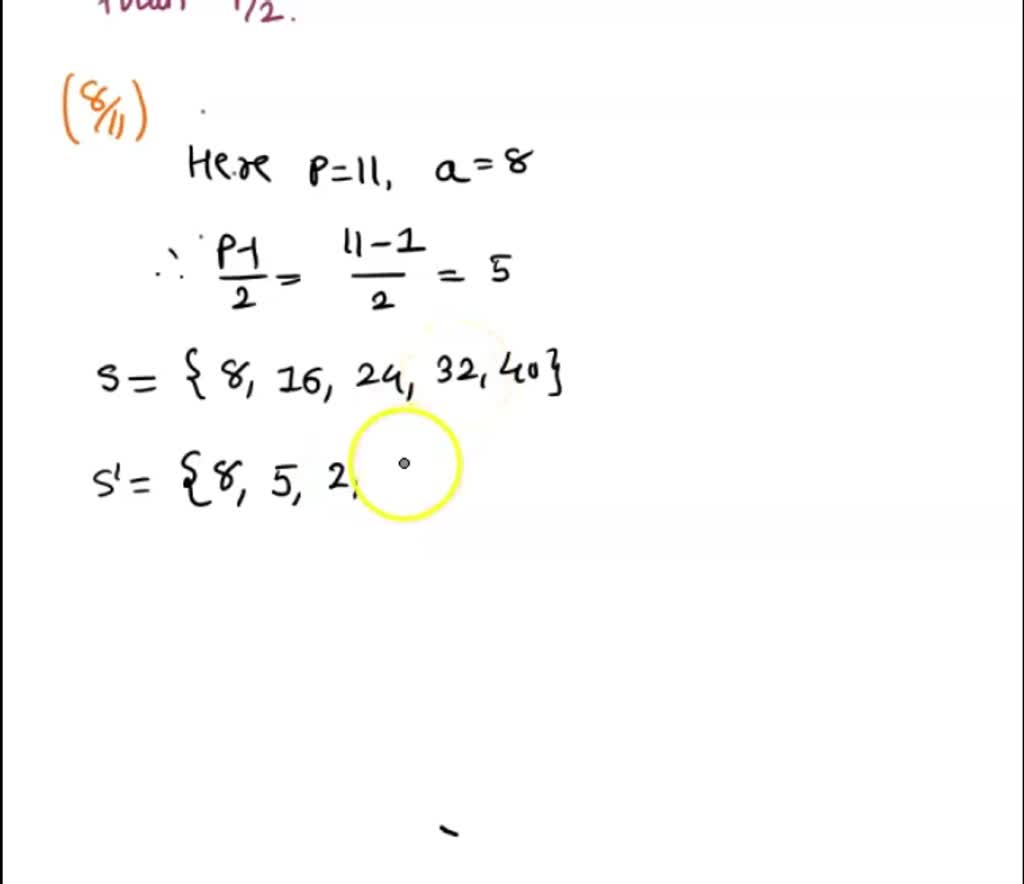 than P/2.
(8/11)
Here P=11, a=8
∴ P-1/2 = 11-1/2 = 5
S = {8, 16, 24, 32, 40}
S' = {8, 5, 2,